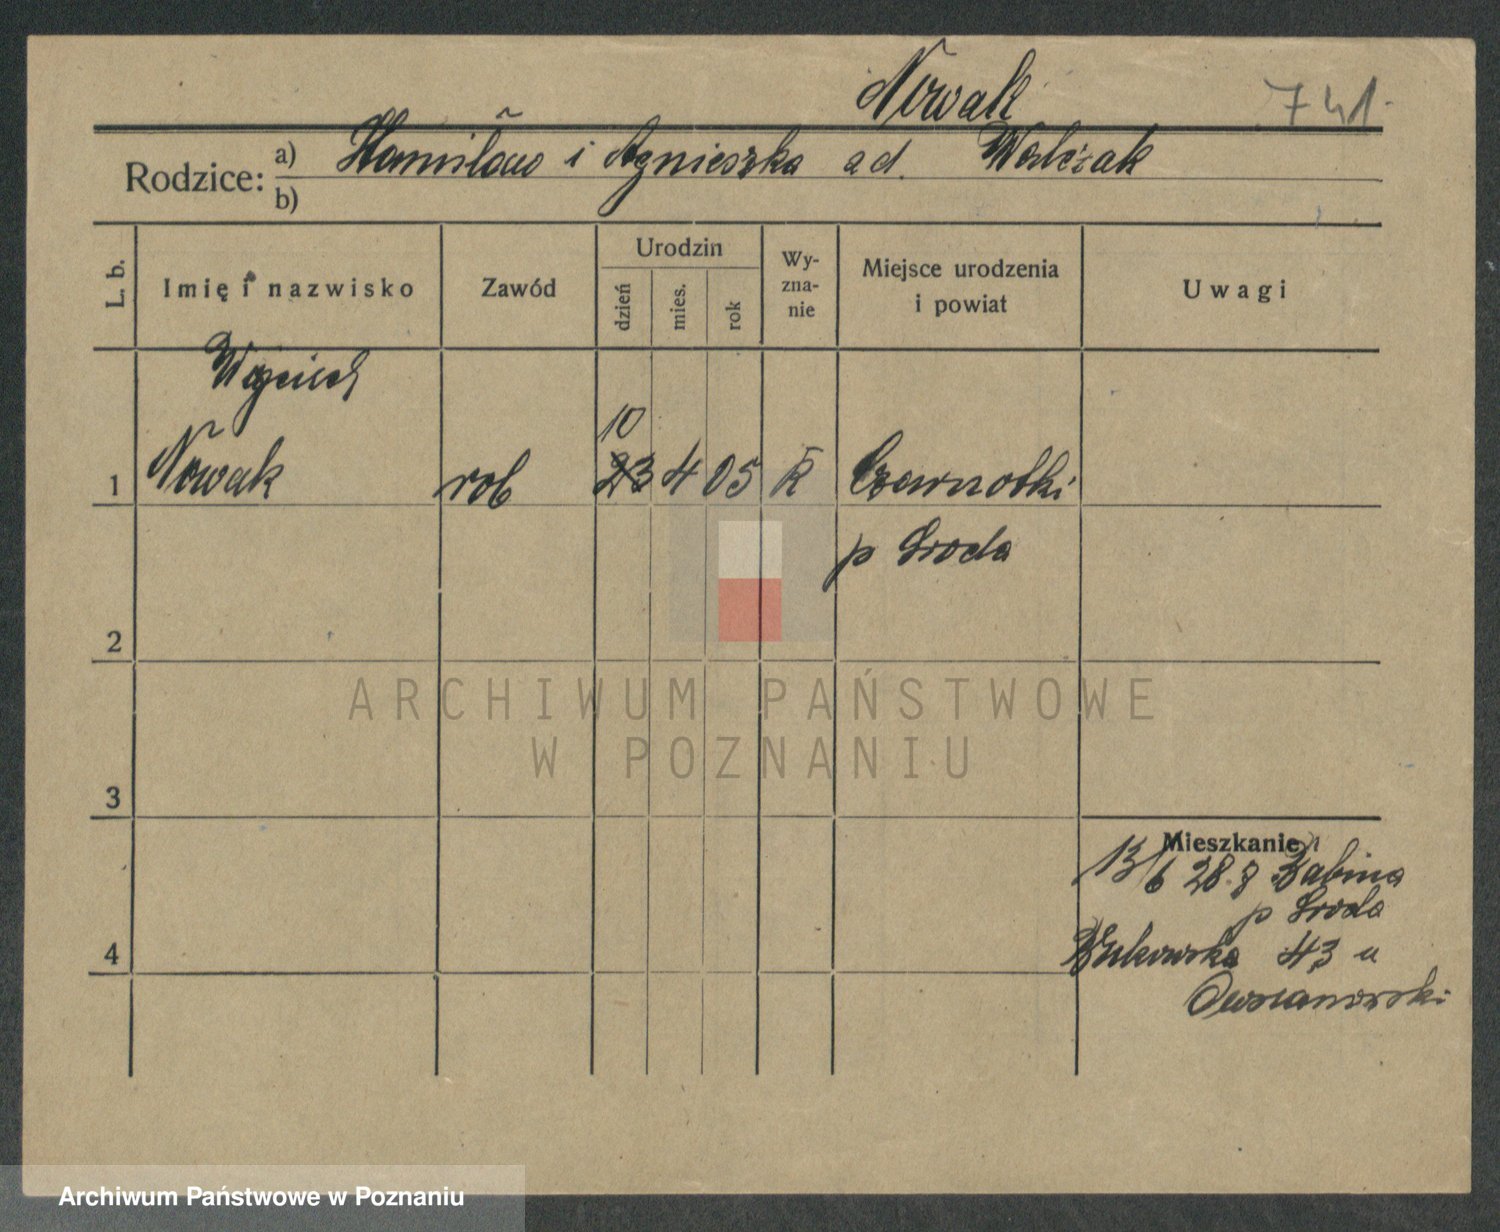 Nowak
741
Rodzice: a) i Agnieszka ad. Walczak
b)
L. b.
Imię i nazwisko
Zawód
Urodzin
dzień
mies.
rok
Wy-
zna-
nie
Miejsce urodzenia
i powiat
Uwagi
Wojciech
10
1 Nowak rob 23 4 05 R Czarnotki
p Sroda
2
3
Mieszkanie
13/6 28 z Babina
p Sroda
4
Bukowska 43 u
ARCHIWUM PAŃSTWOWE
W POZNANIU
Archiwum Państwowe w Poznaniu